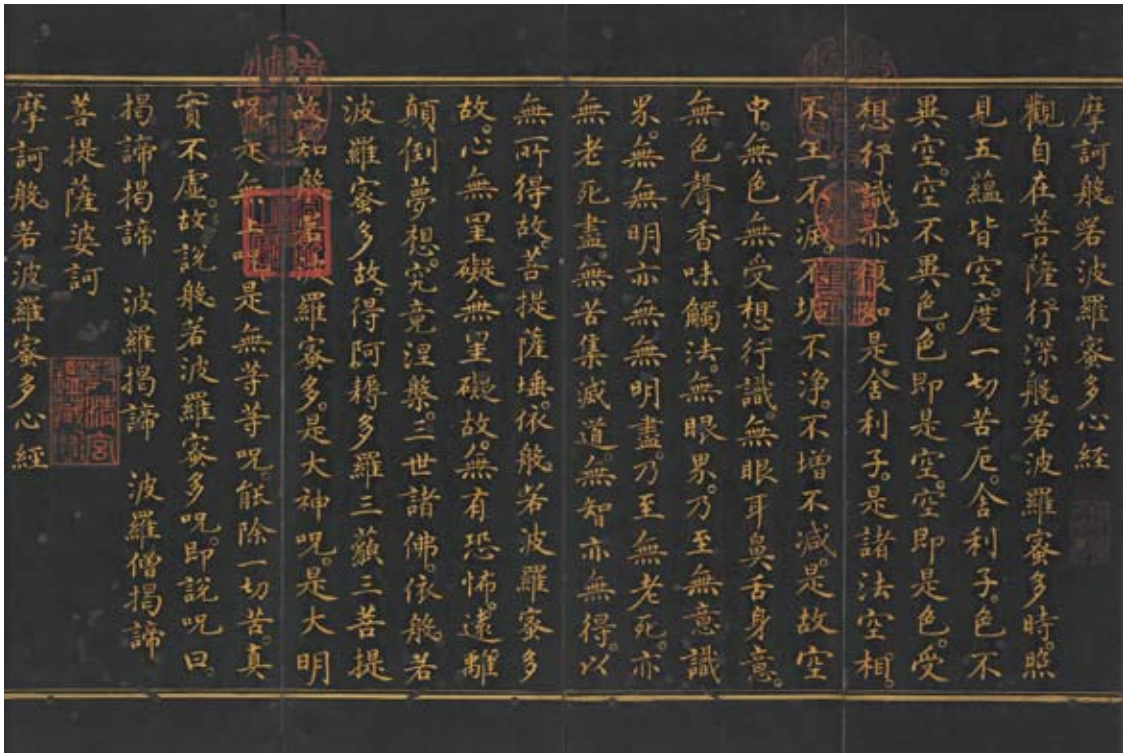 摩訶般若波羅蜜多心經
觀自在菩薩行深般若波羅蜜多時。照
見五蘊皆空。度一切苦厄。舍利子。色不
異空。空不異色。色即是空。空即是色。受
想行識。亦復如是。舍利子。是諸法空相。
不生不滅。不垢不淨。不增不減。是故空
中。無色無受想行識。無眼耳鼻舌身意。
無色聲香味觸法。無眼界。乃至無意識
界。無無明亦無無明盡。乃至無老死。亦
無老死盡。無苦集滅道。無智亦無得。以
無所得故。菩提薩埵。依般若波羅蜜多
故。心無罣礙無罣礙故。無有恐怖。遠離
顛倒夢想。究竟涅槃。三世諸佛。依般若
波羅蜜多故。得阿耨多羅三藐三菩提
故知般若波羅蜜多。是大神呪。是大明
呪是無上呪是無等等呪。能除一切苦。真
實不虛。故說般若波羅蜜多呪。即說呪曰
揭諦揭諦 波羅揭諦 波羅僧揭諦
菩提薩婆訶
乾清宮鑑藏寶
摩訶般若波羅蜜多心經